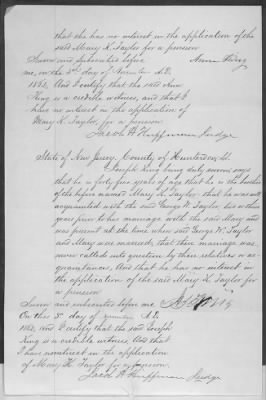 that she has no interest in the application of the
said Mary K. Taylor for a pension
Sworn and subscribed before Anna King
me, on the 3d day of November A.D.
1862, And I certify that the said Ann
King is a credible witness, and that I
have no interest in the application of
Mary K. Taylor, for a pension.
Jacob H Huffman Judge
State of New Jersey County of Hunterdon SS.
Joseph King being duly sworn says
that he is forty five years of age that he is the brother
of the before named Mary K Taylor that he was well
acquainted with the said George W. Taylor
years prior to his marriage with the said Mary and
was present at the time when said George W. Taylor
and Mary was married, that their marriage was
never called into question by their relatives or ac-
quaintances, And that he has no interest in
the application of the said Mary K Taylor for
a pension
Sworn and subscribed before me
On this 3d day of November A.D
1862, And I certify that the said Joseph
King is a credible witness, And that
I have no interest in the application
of Mary K. Taylor for a pension.
Jacob H Huffman Judge